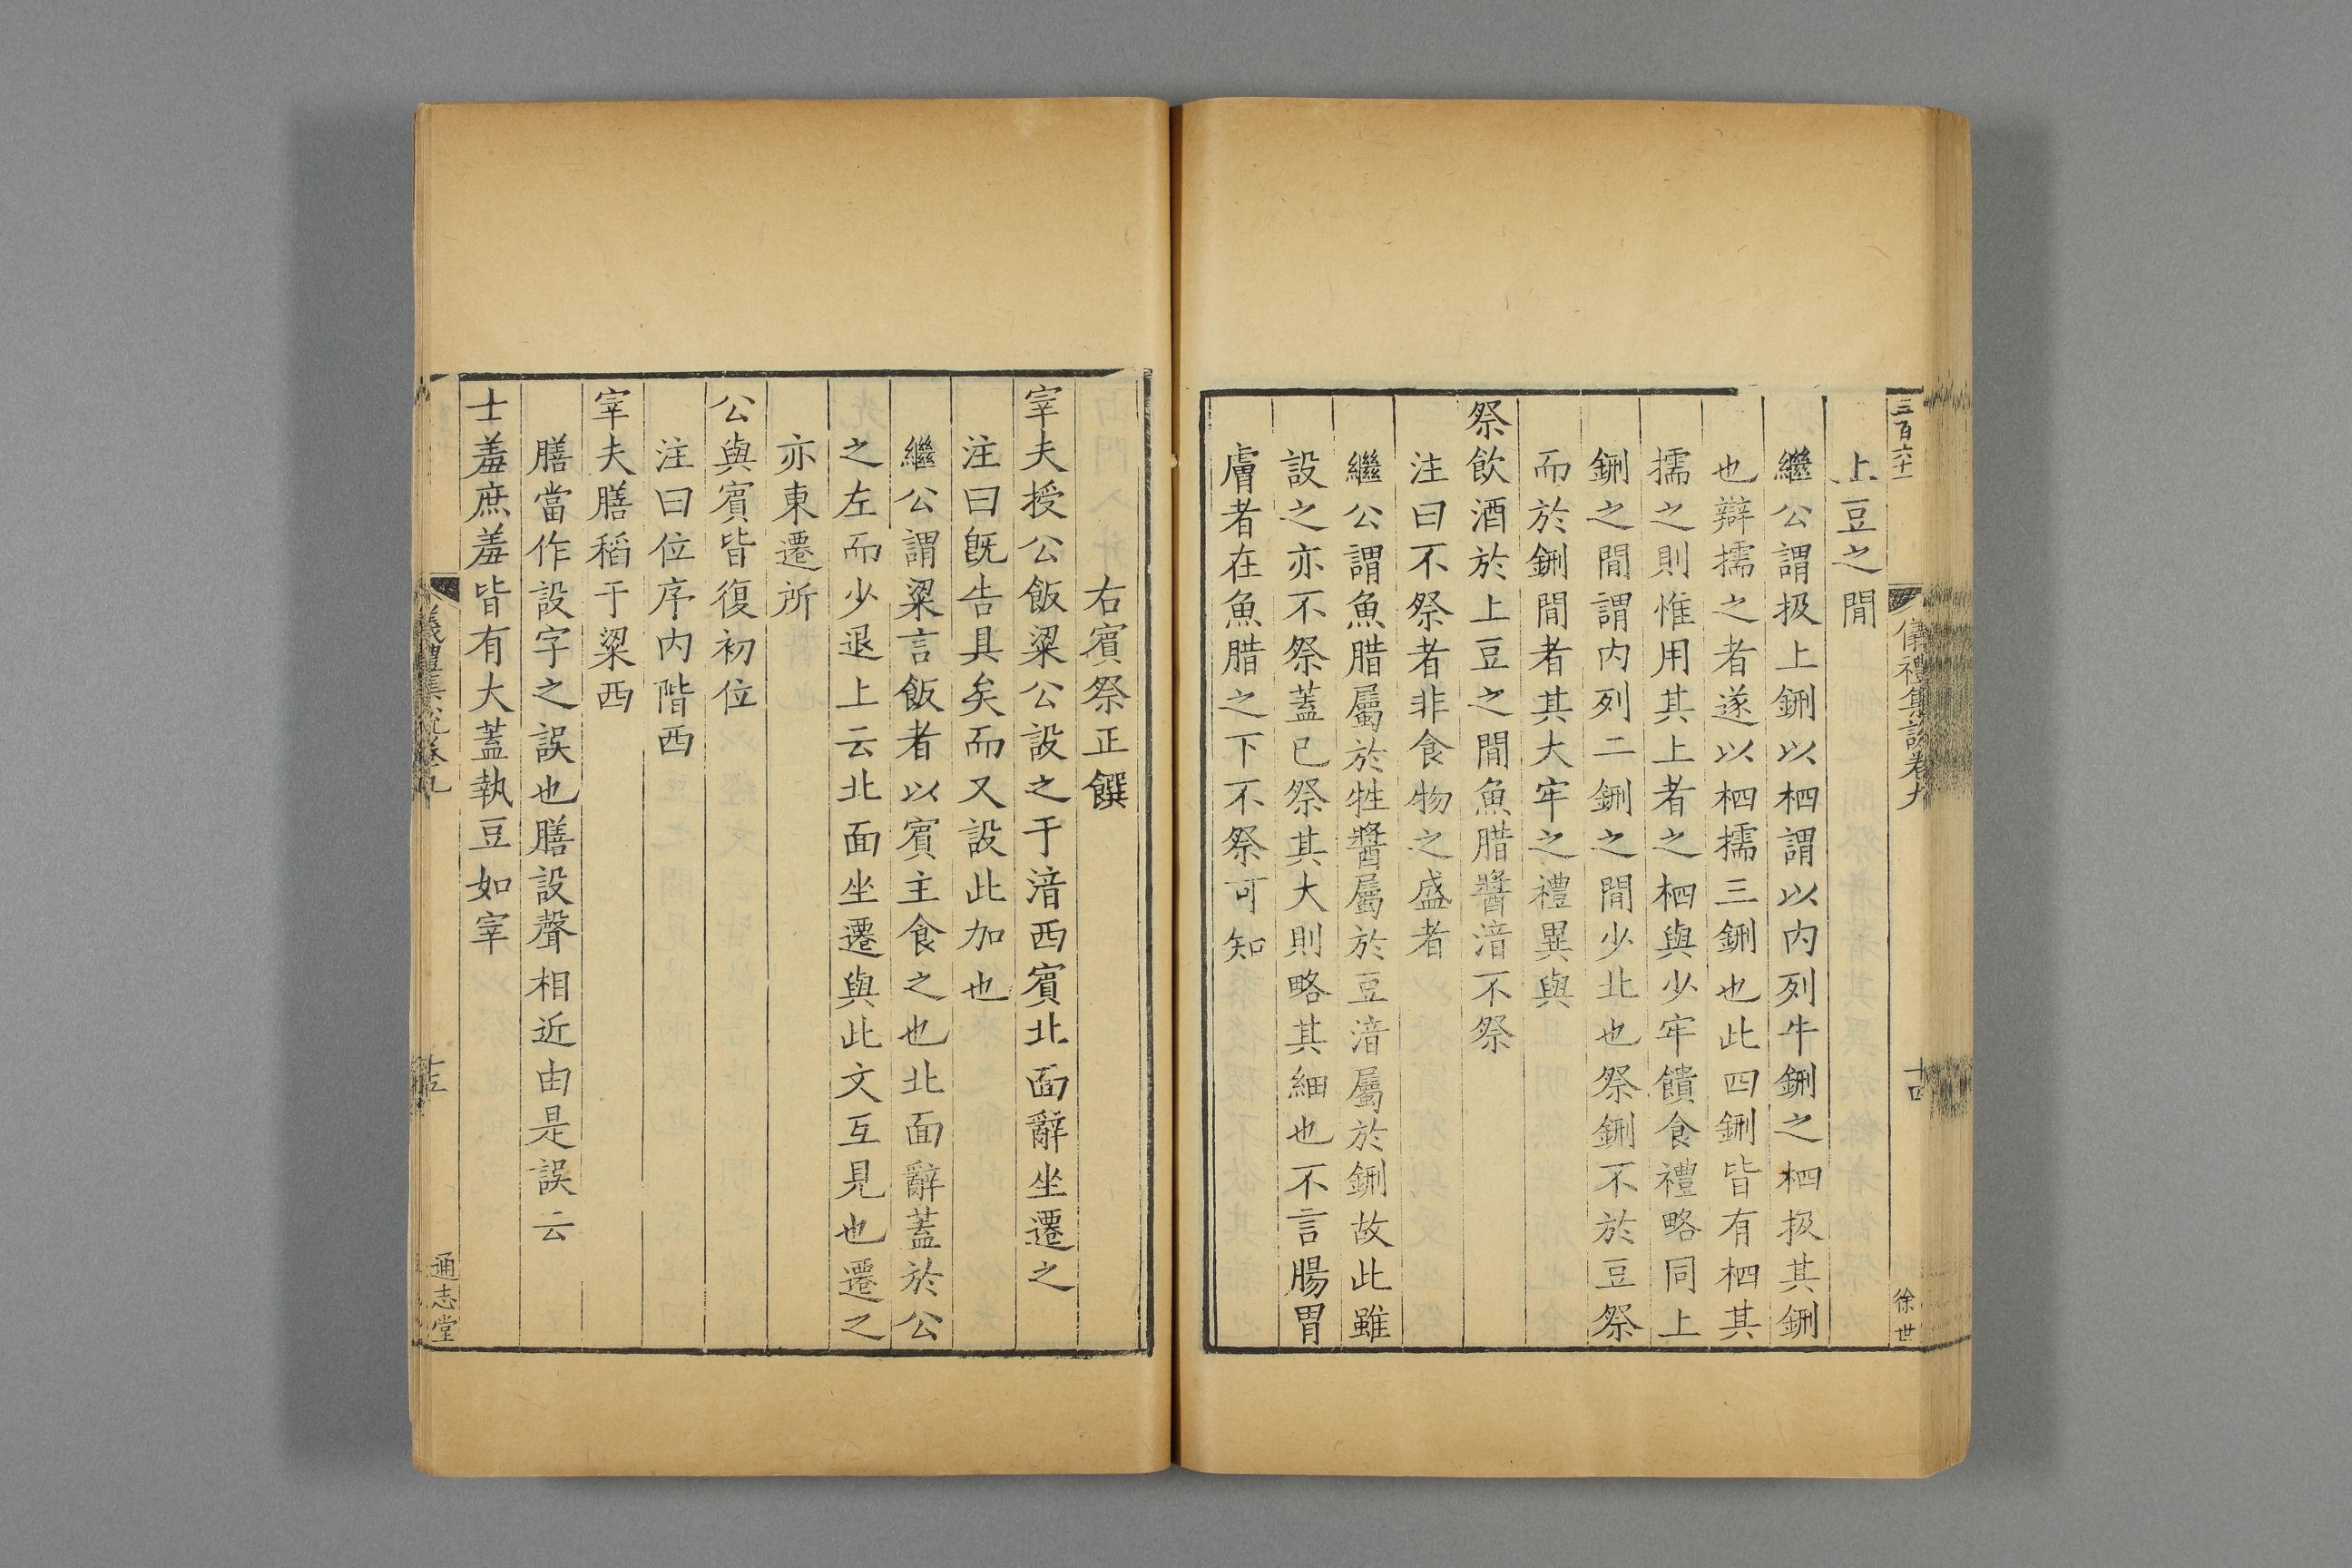 三百六十一
儀禮集説卷九
十四
徐世
上豆之閒
繼公謂扱上鉶以柶謂以内列牛鉶之柶扱其鉶
也辯擩之者遂以柶擩三鉶也此四鉶皆有柶其
擩之則惟用其上者之柶與少牢饋食禮略同上
鉶之閒謂内列二鉶之閒少北也祭鉶不於豆祭
而於鉶閒者其大牢之禮異與
祭飲酒於上豆之閒魚腊醬湆不祭
注曰不祭者非食物之盛者
繼公謂魚腊屬於牲醬屬於豆湆屬於鉶故此雖
設之亦不祭蓋已祭其大則略其細也不言腸胃
膚者在魚腊之下不祭可知
右賓祭正饌
宰夫授公飯粱公設之于湆西賓北面辭坐遷之
注曰旣告具矣而又設此加也
繼公謂粱言飯者以賓主食之也北面辭蓋於公
之左而少退上云北面坐遷與此文互見也遷之
亦東遷所
公與賓皆復初位
注曰位序内階西
宰夫膳稻于粱西
膳當作設字之誤也膳設聲相近由是誤云
士羞庶羞皆有大蓋執豆如宰
儀禮集説卷九
十五
通志堂